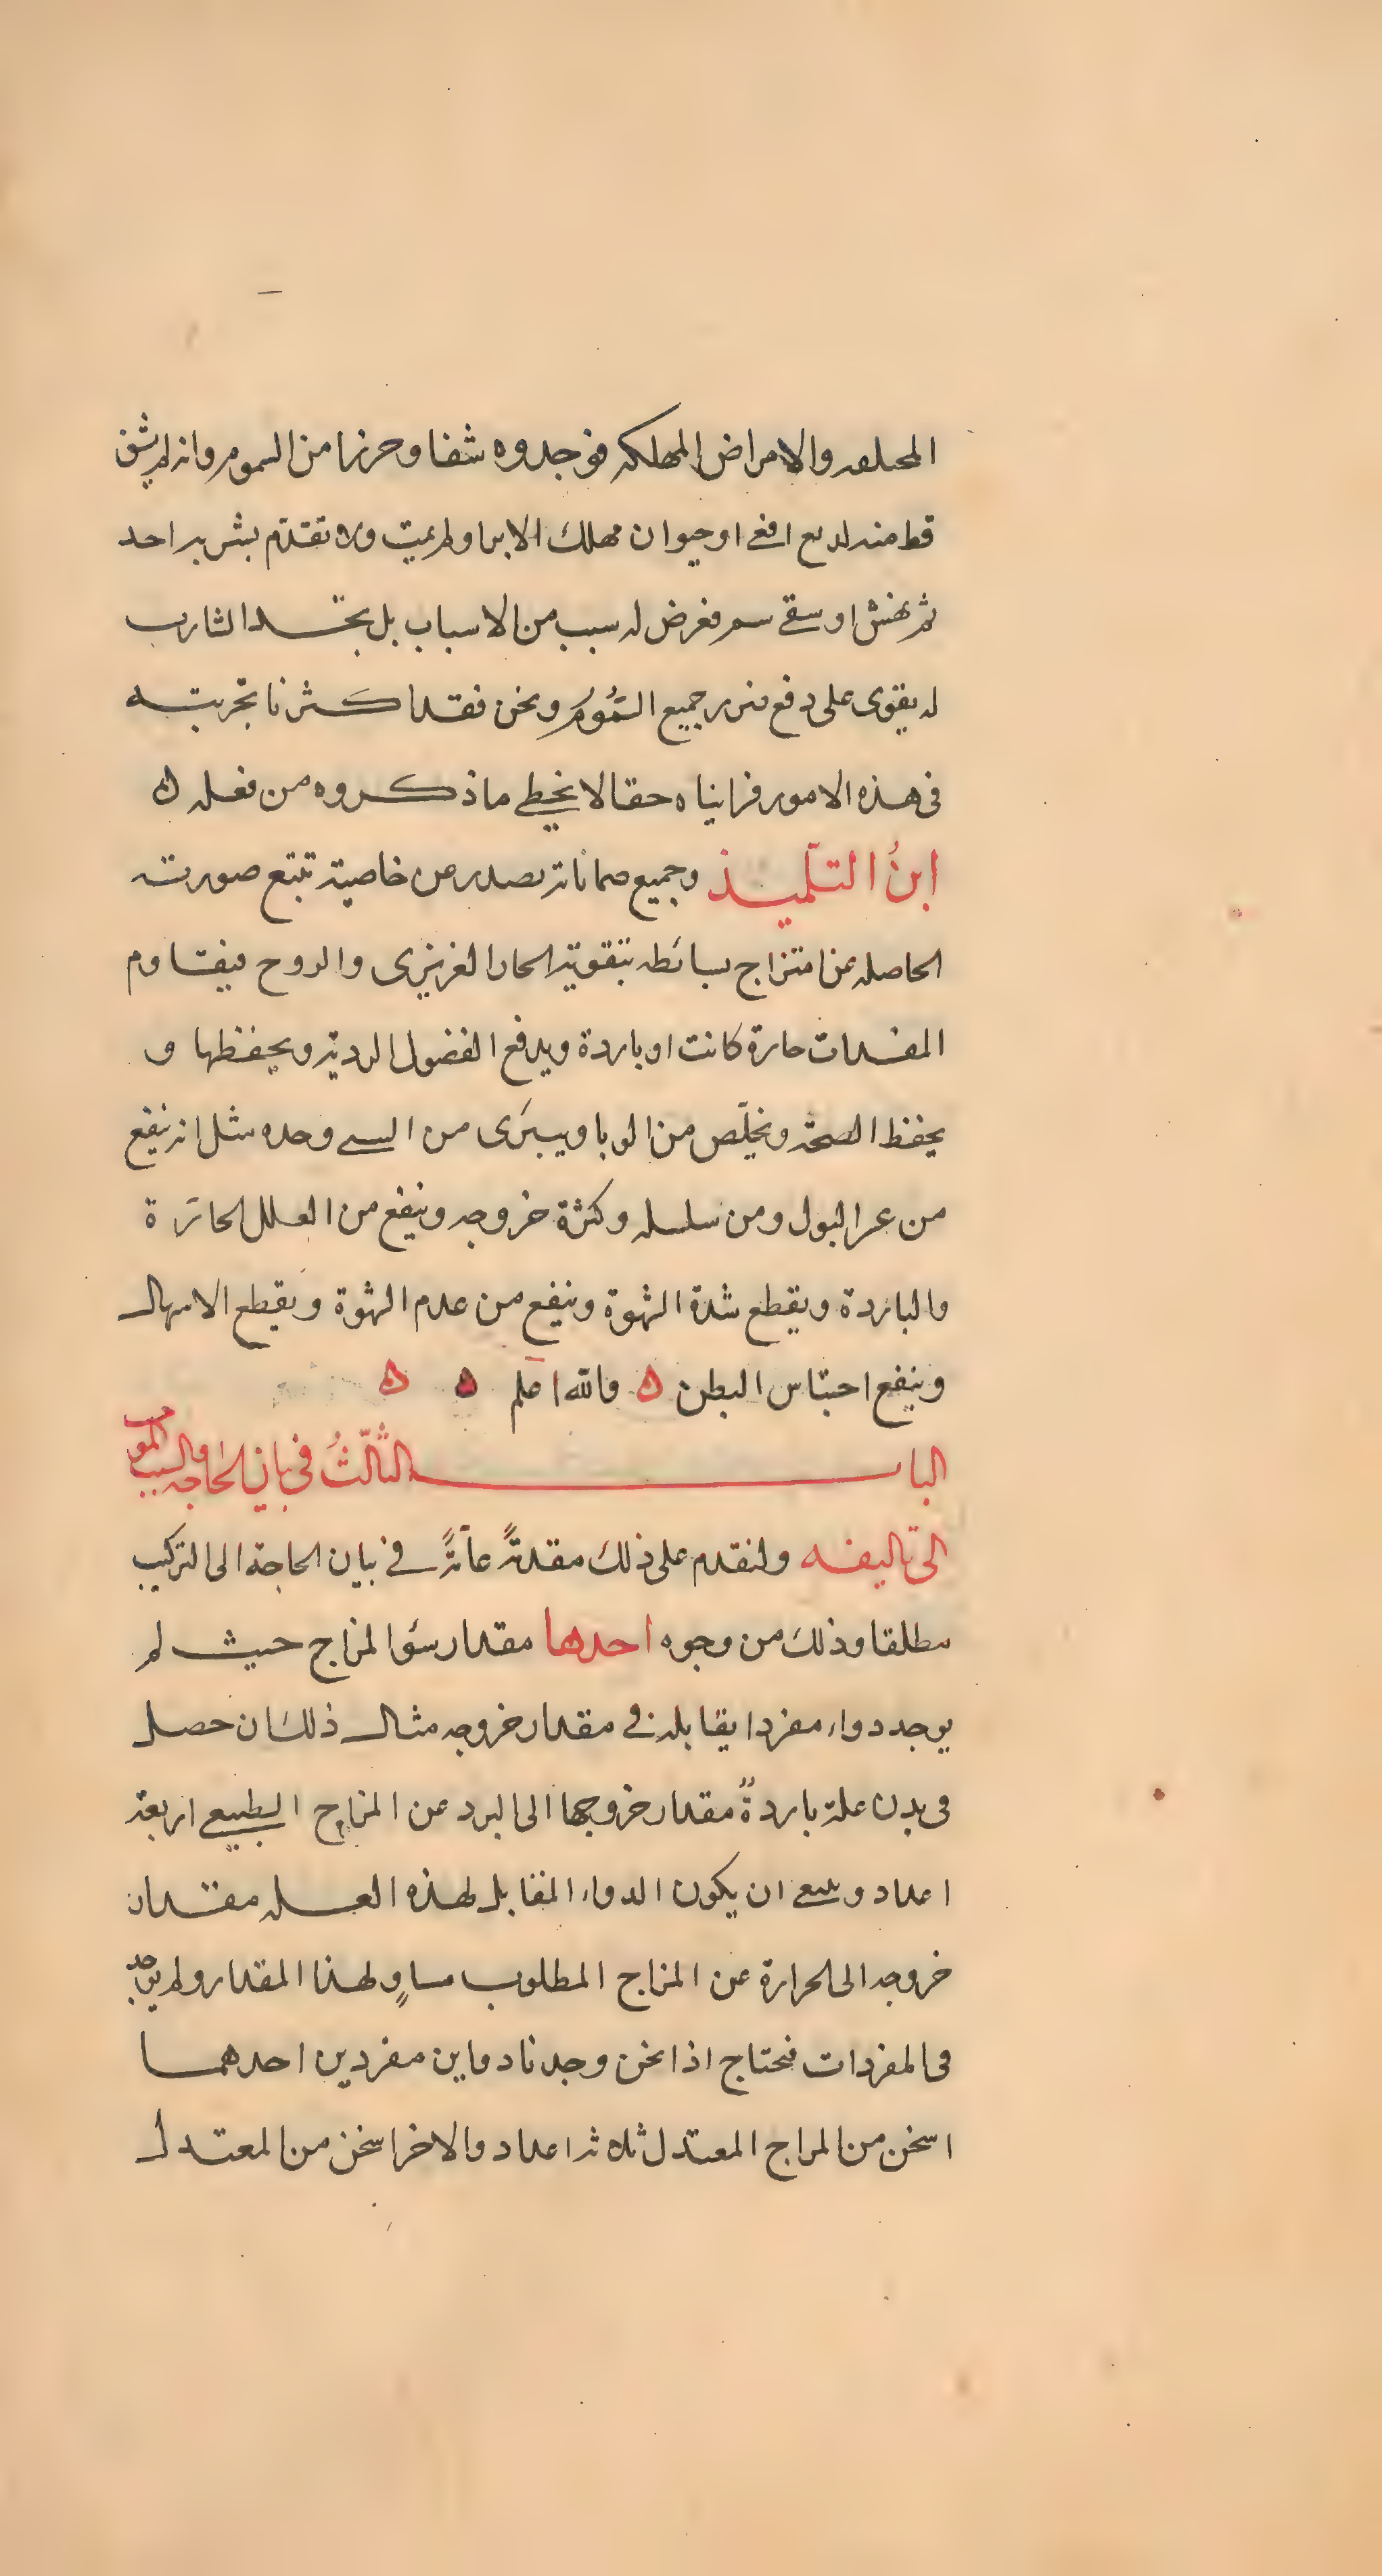 المختلفه والامراض المهلكه فوجدوه شفا وحرزا من السموم وانه لم يشف
قط منه لديع افعى او حيوان مهلك الا برا ولم يمت ولا تقدم بشربه احد
ثم نهش او سقى سم فعرض له سبب من الاسباب بل تجد الشارب
له يقوى على دفع ضرر جميع السُّمُوم ونحن فقد اكثرنا تجربته
فى هذه الامور فراينا ه حقا لا يخطى ما ذكروه من فعله ه
ابنُ التلميذ وجميع يصدر عن خاصية تتبع صورته
الحاصله عن امتزاج بسائطه بتقوية الحار الغريزى والروح فيقاوم
المفسدات حارة كانت او باردة ويدفع الفضول الردية ويحفظها و
يحفظ الصحة ويخلّص من الوبا ويبرى من السى وحده مثل انه ينفع
من عسر البول ومن سلسله وكثرة خروجه وينفع من العلل الحارة
والباردة ويقطع شدة الشهوة وينفع من عدم الشهوة ويقطع الاسهال
وينفع احتباس البطن ه والله اعلم ه ه
الباب الثَّالثُ فى بيان الحاجه والسبب الموجب
الى تاليفه ولنقدم على ذلك مقدمةً عامةً فى بيان الحاجة الى التركيب
مطلقا وذلك من وجوه احدها مقدار سؤ المزاج حيث لم
يوجد دواء مفردا يقابله فى مقدار خروجه مثال ذلك ان حصل
فى بدن علة باردةٌ مقدار خروجها الى البرد عن المزاج الطبيعى اربعة
اعداد وينبغى ان يكون الدواء المقابل لهذه العله مقدار
خروجه الى الحرارة عن المزاج المطلوب مساوٍ لهذا المقدار ولم يوجد
فى المفردات فنحتاج اذا نحن وجدنا دواين مفردين احدهما
اسخن من المزاج المعتدل ثلاثه اعداد والاخر اسخن من المعتدل